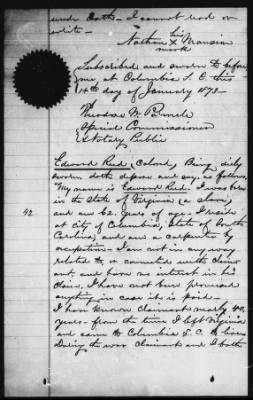 under Oath - I cannot read or
write -
his
Nathan X Manson
mark
Subscribed and sworn to before
me, at Columbia S. C. this
14th day of January 1873 -
Theodore W. Parmele
Special Commissioner
& Notary Public
Edward Reed, (Colored) Being duly
sworn doth depose and say as follows.
My name is Edward Reed. I was born
in the State of Virginia, (a slave)
42
and am 62 years of age - I reside
at city of Columbia, State of South
Carolina, and am a carpenter by
occupation - I am not in any way
related to, or connected with claim-
ant, and have no interest in his
claim, I have not been promised
anything in case it is paid -
I have known claimant nearly 40
years - from the time I left Virginia
and came to Columbia S. C. to live
During the war Claimant and I both